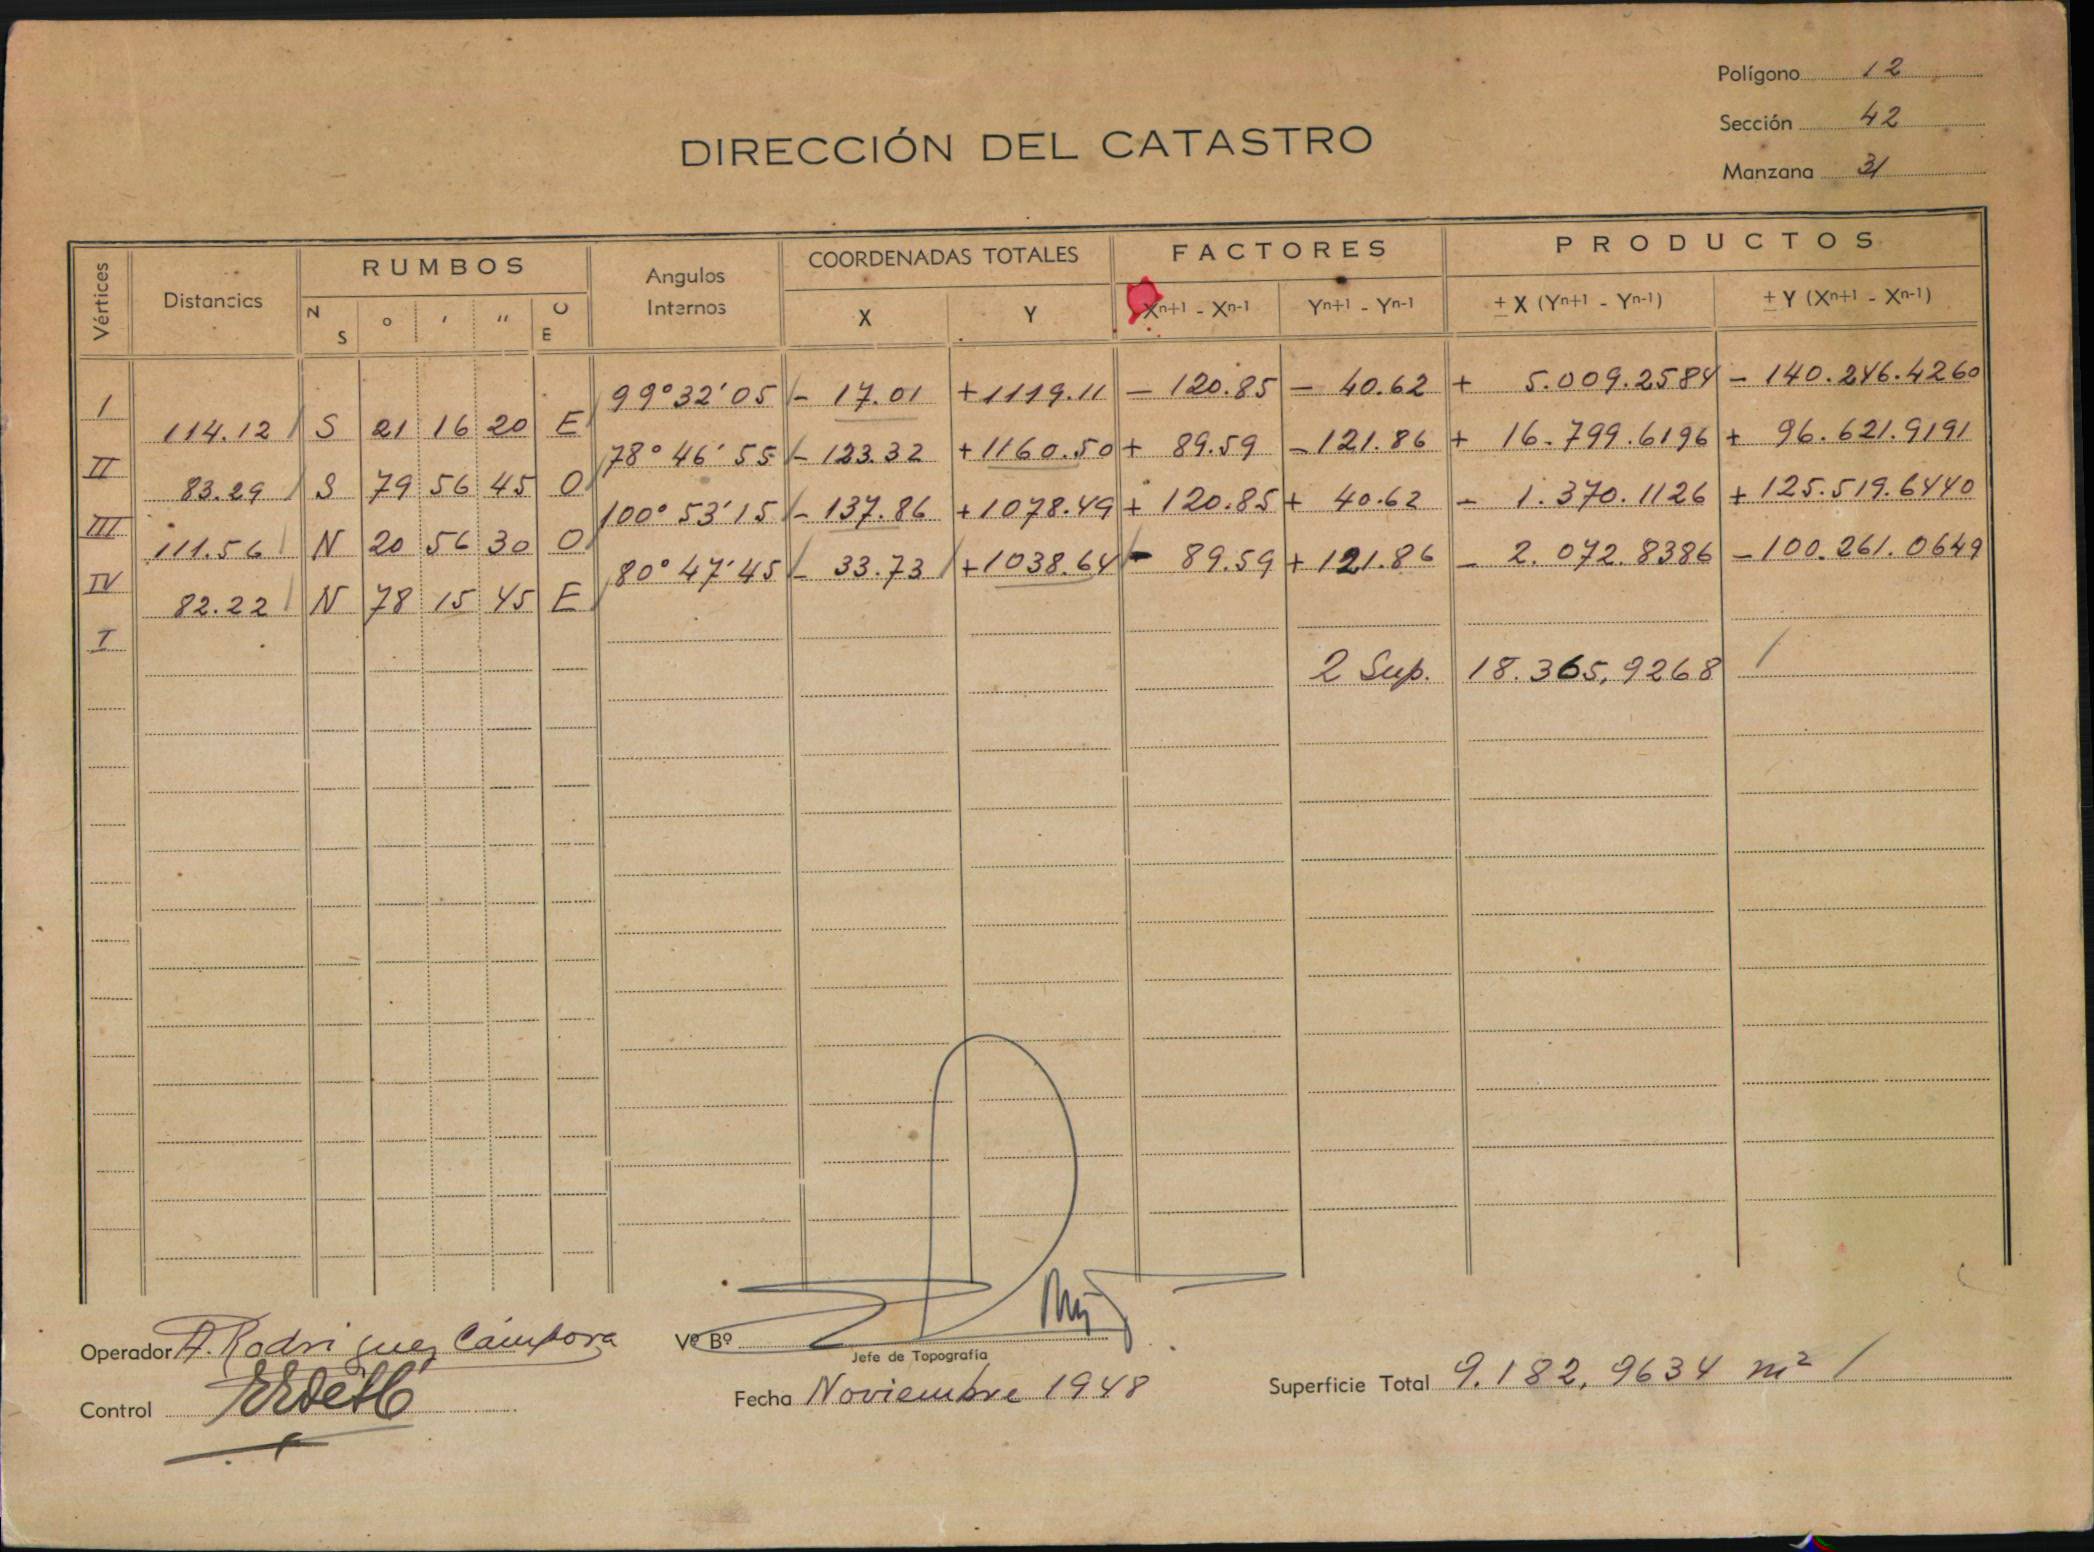 Polígono 12
Sección 42
Manzana 31
DIRECCIÓN DEL CATASTRO
Vértices Distancias RUMBOS Angulos Internos COORDENADAS TOTALES FACTORES PRODUCTOS
N S ° ' '' O E X Y Xn+1 - Xn-1 Yn+1 - Yn-1 ± X (Yn+1 - Yn-1) ± Y (Xn+1 - Xn-1)
I 99°32'05 - 17.01 +1119.11 - 120.85 - 40.62 + 5.009.2584 - 140.246.4260
114.12 S 21 16 20 E
II 78°46'55 - 123.32 +1160.50 + 89.59 - 121.86 + 16.799.6196 + 96.621.9191
83.29 S 79 56 45 O
III 100°53'15 - 137.86 +1078.49 + 120.85 + 40.62 - 1.370.1126 + 125.519.6440
111.56 N 20 56 30 O
IV 80°47'45 - 33.73 +1038.64 - 89.59 + 121.86 - 2.072.8386 - 100.261.0649
82.22 N 78 15 45 E
I
2 Sup. 18.365,9268
Operador A. Rodriguez Cámpora Vº Bº
Jefe de Topografía
Control
Fecha Noviembre 1948
Superficie Total 9.182,9634 m²